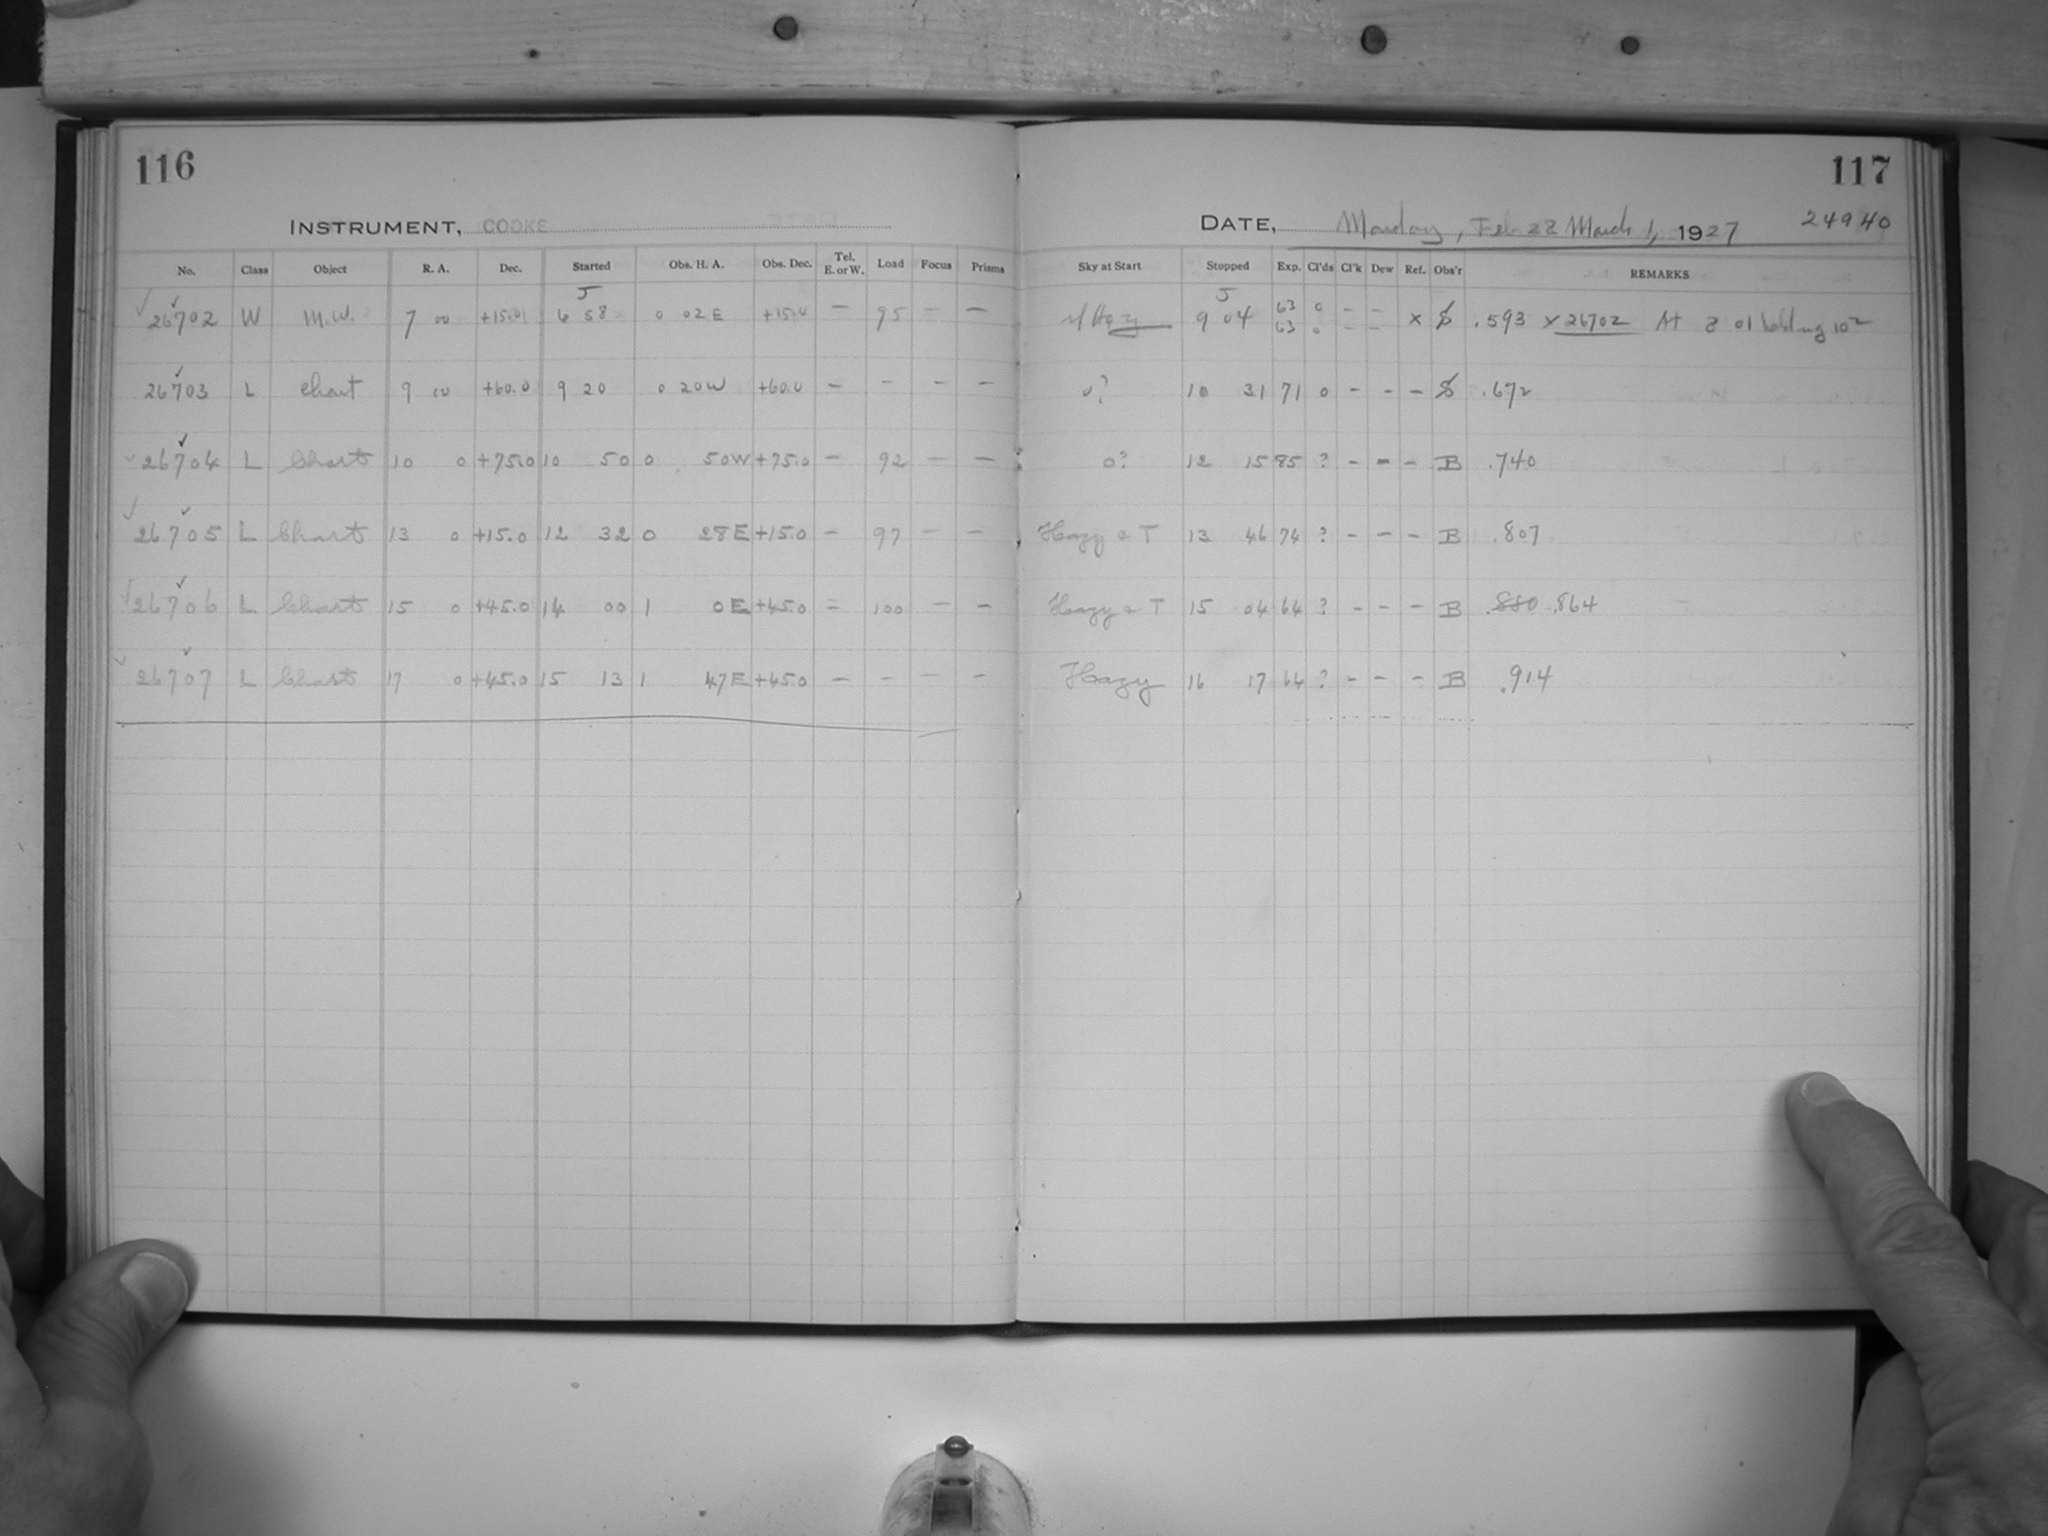 116
INSTRUMENT, COOKE
No. Class Object R. A. Dec. Started Obs. H. A. Obs. Dec. Tel. E. or W. Load Focus Prisms
26702 W M.W. 7 00 +15.0 6 58 0 02 E +15.0 — 95 — —
26703 L Chart 9 00 +60.0 9 20 0 20W +60.0 — — — —
26704 L Chart 10 0 +75.0 10 50 0 50W +75.0 — 92 — —
26705 L Chart 13 0 +15.0 12 32 0 28E +15.0 — 97 — —
26706 L Chart 15 0 +45.0 14 00 1 0E +45.0 = 100 — —
26707 L Chart 17 0 +45.0 15 13 1 47E +45.0 — — — —
117
DATE, Monday, Feb 28 March 1, 1927 24940
Sky at Start Stopped Exp. Cl'ds Cl'k Dew Ref. Obs'r REMARKS
Hazy 9 04 63 0 — — x .593 x 26702 At 8 01 holding 10²
63 0 — —
0? 10 31 71 0 — — — .672
0? 12 15 85 ? — — — B .740
Hazy & T 13 46 74 ? — — — B .807
Hazy & T 15 04 64 ? — — — B .880 .864
Hazy 16 17 64 ? — — — B .914